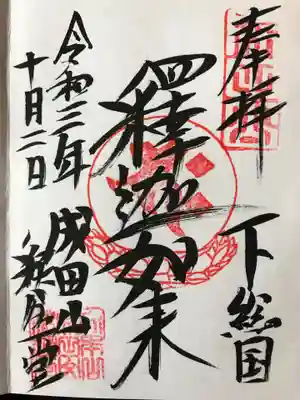 奉拝
下総国
釋迦如来
令和三年
十月二日
成田山
釈迦堂